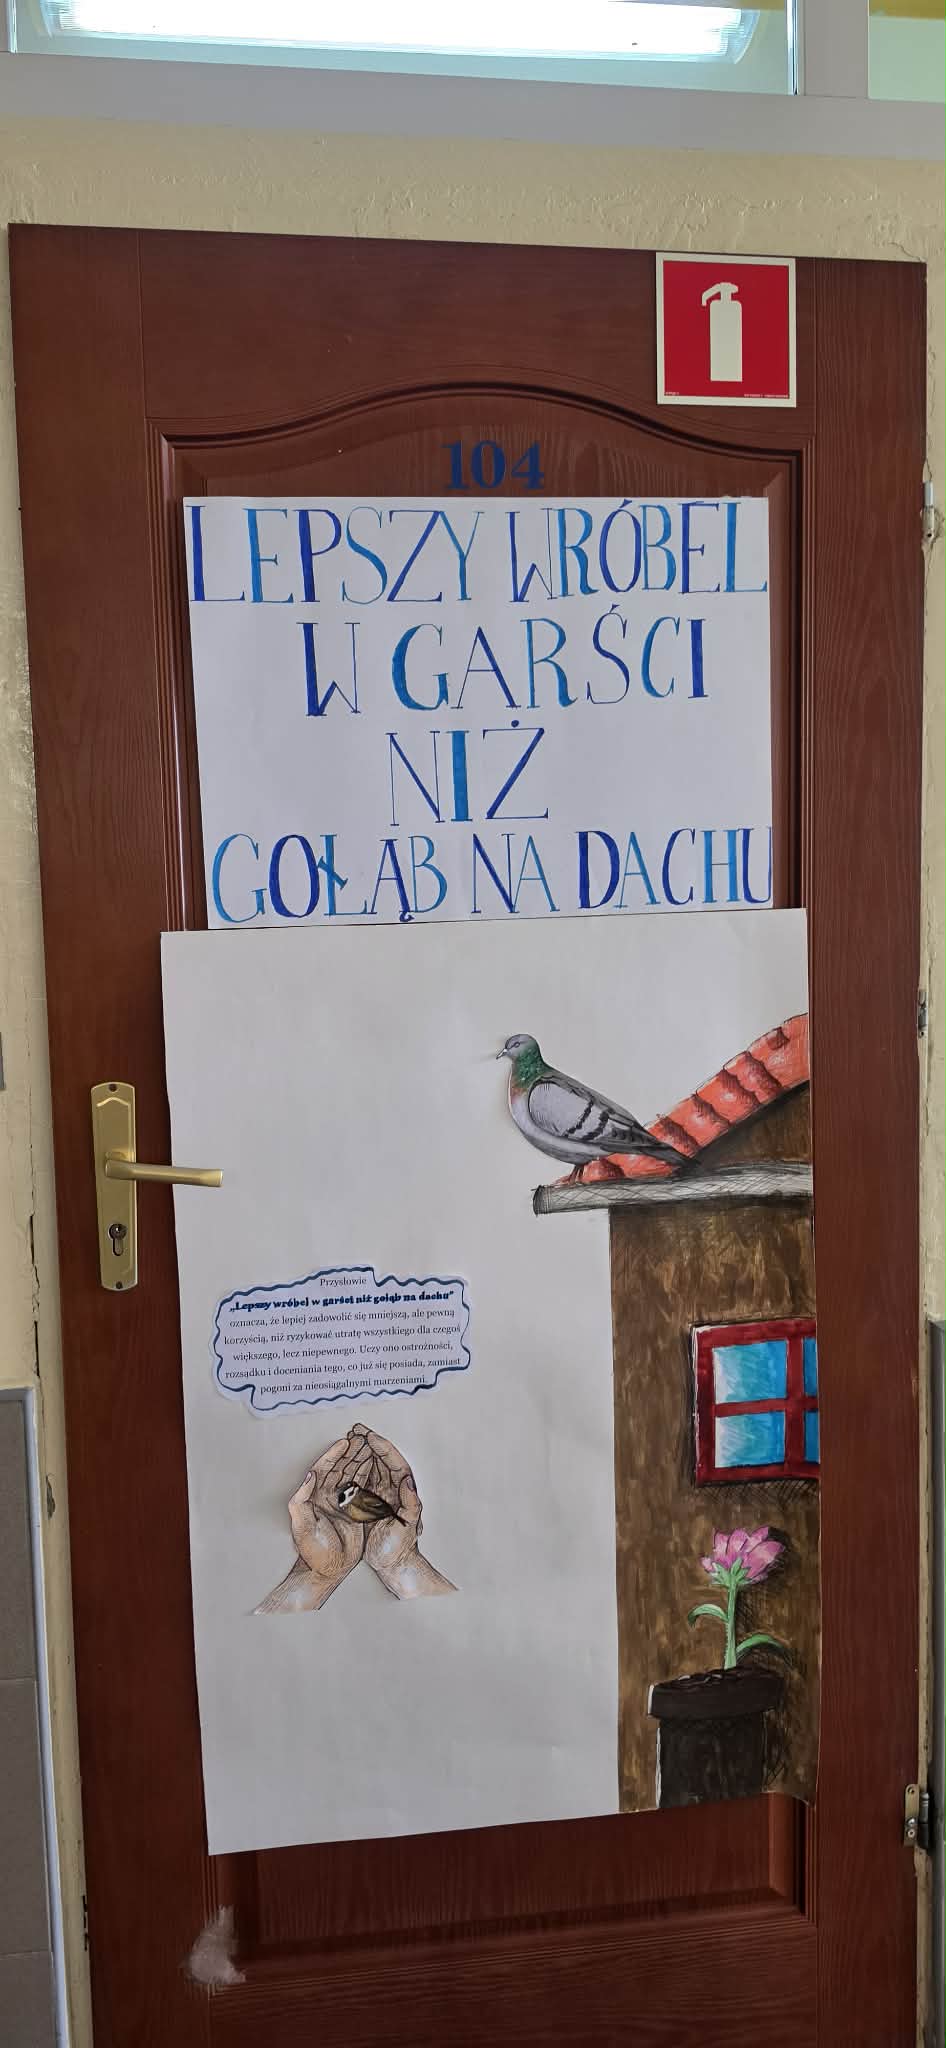 104
LEPSZY WRÓBEL
W GARŚCI
NIŻ
GOŁĄB NA DACHU
Przysłowie
„Lepszy wróbel w garści niż gołąb na dachu”
oznacza, że lepiej zadowolić się mniejszą, ale pewną
korzyścią, niż ryzykować utratę wszystkiego dla czegoś
większego, lecz niepewnego. Uczy ono ostrożności,
rozsądku i doceniania tego, co już się posiada, zamiast
pogoni za nieosiągalnymi marzeniami.